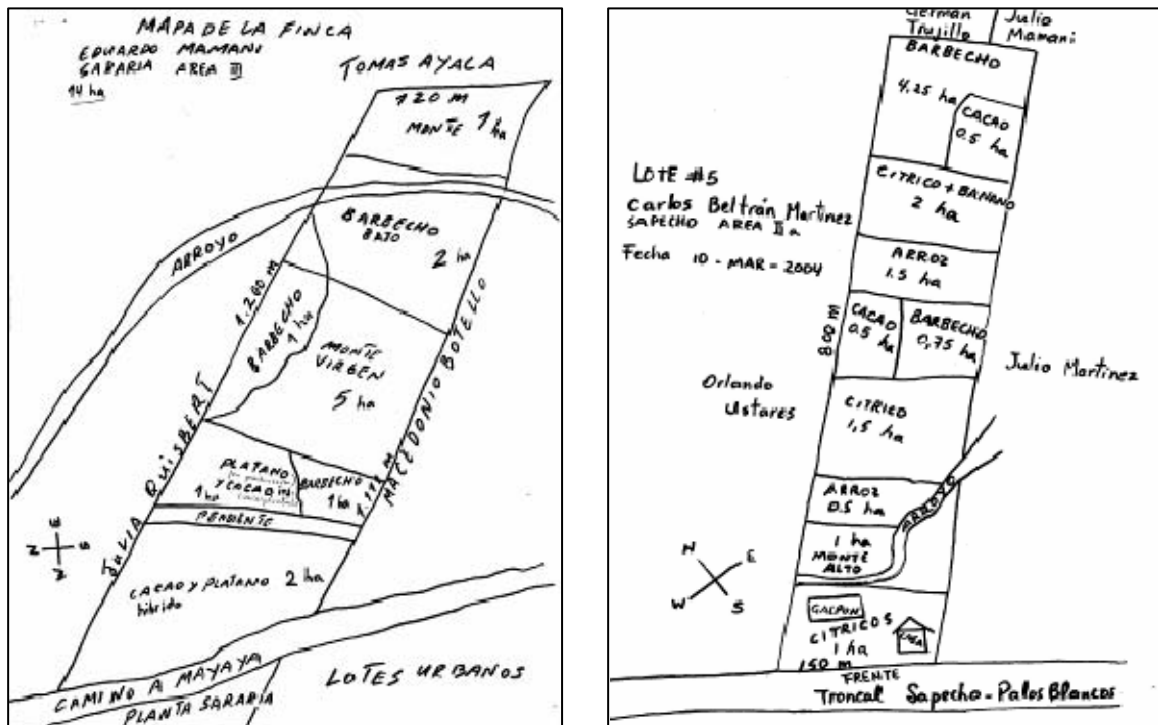 MAPA DE LA FINCA
EDUARDO MAMANI
SARARIA AREA III
14 ha
TOMAS AYALA
120 m
MONTE 1 ha
ARROYO
BARBECHO
BAJO
2 ha
1.260 m
BARBECHO
1 ha
MONTE
VIRGEN
5 ha
JULIA QUISBERT
MACEDONIO BOTELLO
PLATANO
Y CACAO
1 ha
BARBECHO
1 ha
PENDIENTE
CACAO Y PLATANO 2 ha
hibrido
CAMINO A MAYAYA
LOTES URBANOS
PLANTA SARARIA
German
Trujillo
Julio
Mamani
BARBECHO
4,25 ha
CACAO
0.5 ha
LOTE #5
Carlos Beltrán Martinez
SAPECHO AREA II a
Fecha 10 - MAR = 2004
CITRICO + BANANO
2 ha
ARROZ
1.5 ha
CACAO
0.5 ha
BARBECHO
0,75 ha
800 m
Orlando
Ustares
Julio Martinez
CITRICO
1,5 ha
ARROZ
0.5 ha
ARROYO
1 ha
MONTE
ALTO
N
E
W
S
GALPON
CITRICOS
1 ha
CASA
150 m
FRENTE
Troncal Sapecho - Palos Blancos